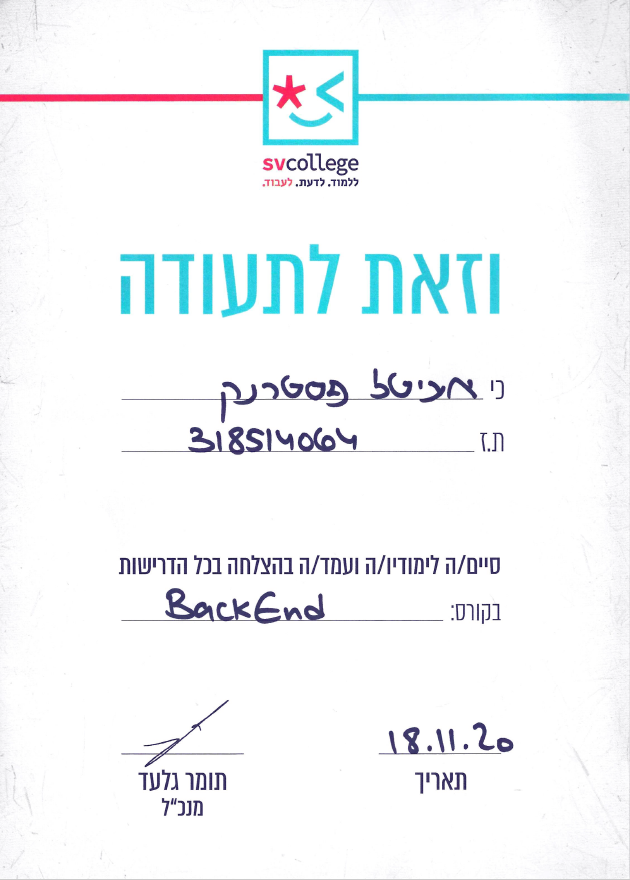 svcollege
ללמוד. לדעת. לעבוד.
וזאת לתעודה
כי אביטל פסטרנק
ת.ז 318514064
סיים/ה לימודיו/ה ועמד/ה בהצלחה בכל הדרישות
בקורס: BackEnd
18.11.20
תאריך
תומר גלעד
מנכ"ל